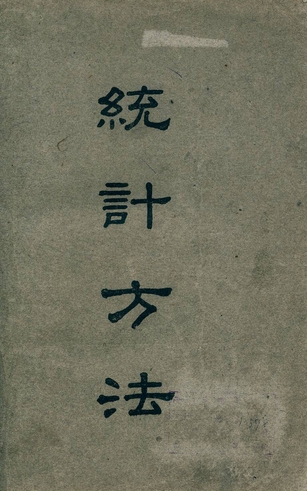 統計方法